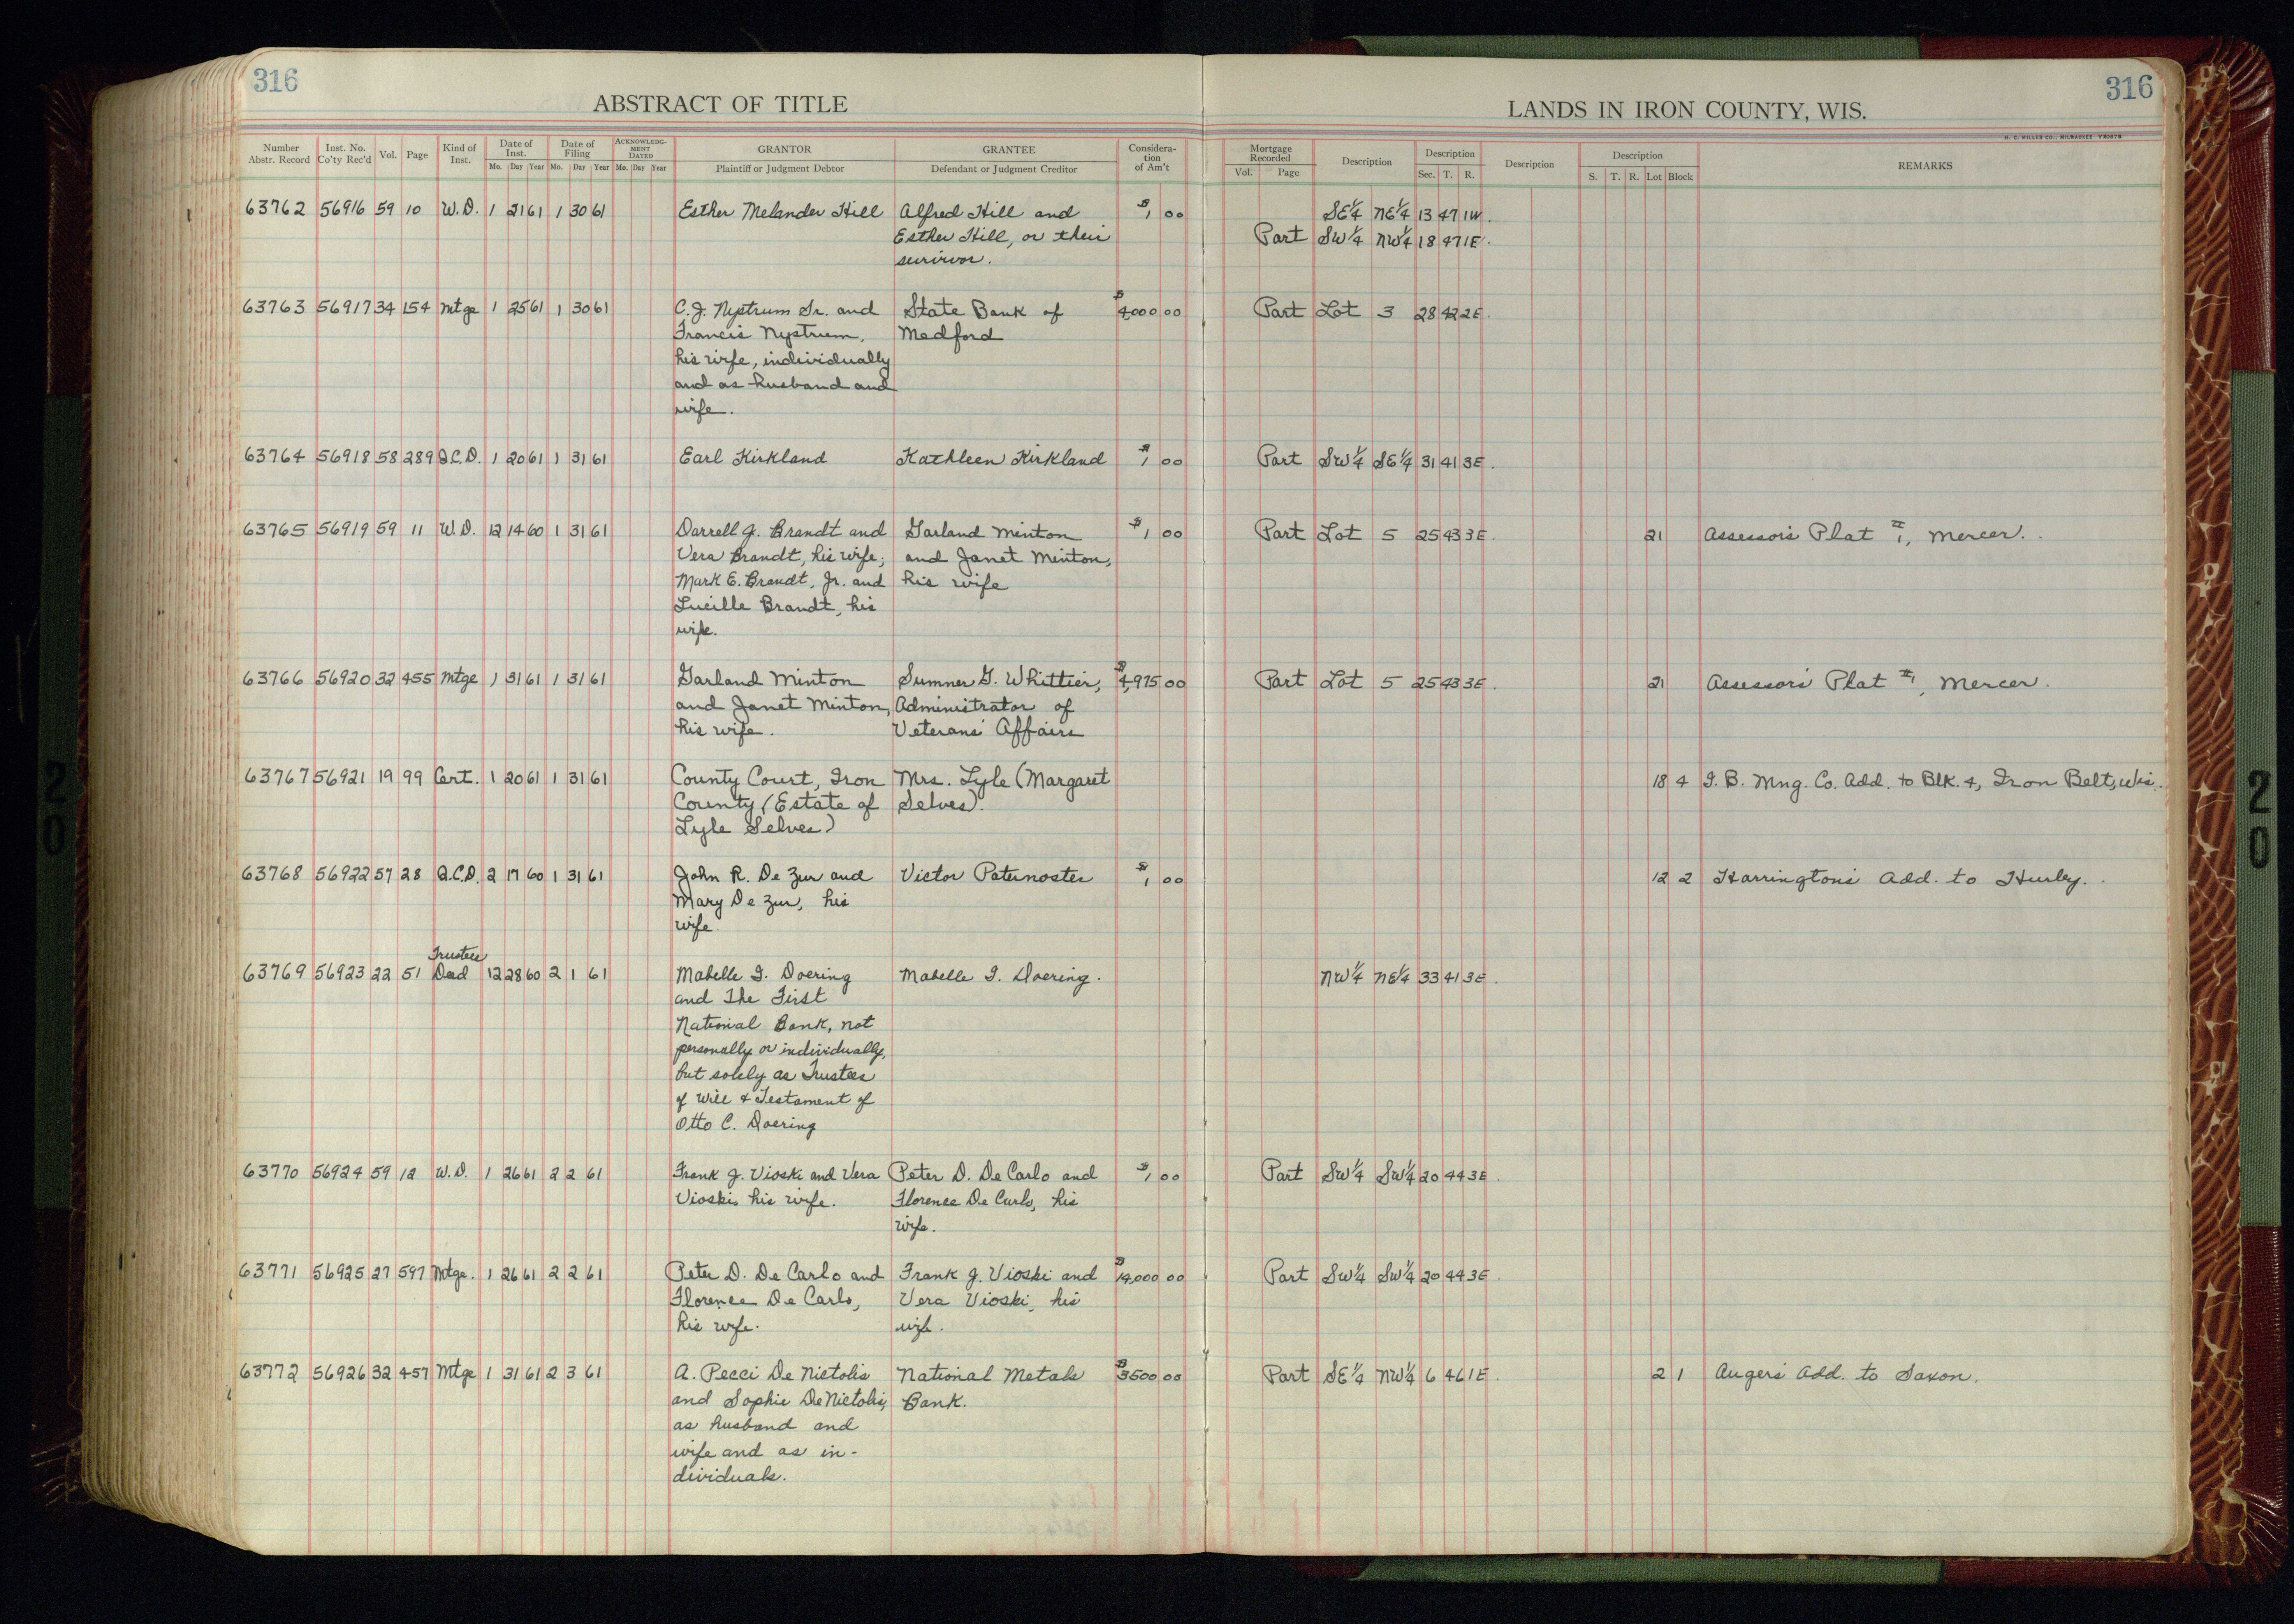 316
316
ABSTRACT OF TITLE
LANDS IN IRON COUNTY, WIS.
H. C. MILLER CO., MILWAUKEE
Number Abstr. Record Inst. No. Co'ty Rec'd Vol. Page Kind of Inst. Date of Inst. Mo. Day Year Date of Filing Mo. Day Year ACKNOWLEDGMENT DATED Mo. Day Year GRANTOR Plaintiff or Judgment Debtor GRANTEE Defendant or Judgment Creditor Consideration of Am't Mortgage Recorded Vol. Page Description Description Sec. T. R. Description Description S. T. R. Lot Block REMARKS
63762 56916 59 10 W.D. 1 21 61 1 30 61 Esther Melander Hill Alfred Hill and $1 00 SE¼ NE¼ 13 47 1W.
Esther Hill, or their Part SW¼ NW¼ 18 47 1E.
survivor.
63763 56917 34 154 Mtge 1 25 61 1 30 61 C.J. Nystrum Sr. and State Bank of $4,000 00 Part Lot 3 28 42 2E.
Francis Nystrum, Medford
his wife, individually
and as husband and
wife.
63764 56918 58 289 Q.C.D. 1 20 61 1 31 61 Earl Kirkland Kathleen Kirkland $1 00 Part SW¼ SE¼ 31 41 3E.
63765 56919 59 11 W.D. 12 14 60 1 31 61 Darrell J. Brandt and Garland Minton $1 00 Part Lot 5 25 43 3E. 21 Assessor's Plat #1, Mercer.
Vera Brandt, his wife; and Janet Minton,
Mark E. Brandt, Jr. and his wife
Lucille Brandt, his
wife.
63766 56920 32 455 Mtge 1 31 61 1 31 61 Garland Minton Sumner G. Whittier, $4,975 00 Part Lot 5 25 43 3E. 21 Assessors Plat #1, Mercer.
and Janet Minton, Administrator of
his wife. Veterans' Affairs
63767 56921 19 99 Cert. 1 20 61 1 31 61 County Court, Iron Mrs. Lyle (Margaret 18 4 I.B. Mng. Co. Add. to Blk. 4, Iron Belt, Wis.
County (Estate of Selves).
Lyle Selves)
63768 56922 57 28 Q.C.D. 2 17 60 1 31 61 John R. De Zur and Victor Paternoster $1 00 12 2 Harrington's Add. to Hurley.
Mary De Zur, his
wife.
Trustees
63769 56923 22 51 Deed 12 28 60 2 1 61 Mabelle I. Doering Mabelle I. Doering. NW¼ NE¼ 33 41 3E.
and The First
National Bank, not
personally or individually,
but solely as Trustees
of Will & Testament of
Otto C. Doering
63770 56924 59 12 W.D. 1 26 61 2 2 61 Frank J. Vioski and Vera Peter D. De Carlo and $1 00 Part SW¼ SW¼ 20 44 3E.
Vioski, his wife. Florence De Carlo, his
wife.
63771 56925 27 597 Mtge. 1 26 61 2 2 61 Peter D. De Carlo and Frank J. Vioski and $14,000 00 Part SW¼ SW¼ 20 44 3E.
Florence De Carlo, Vera Vioski, his
his wife. wife.
63772 56926 32 457 Mtge 1 31 61 2 3 61 A. Pecci De Nictolis National Metals $3500 00 Part SE¼ NW¼ 6 46 1E. 2 1 Augers Add. to Saxon.
and Sophie De Nictolis, Bank.
as husband and
wife and as in-
dividuals.
20
20